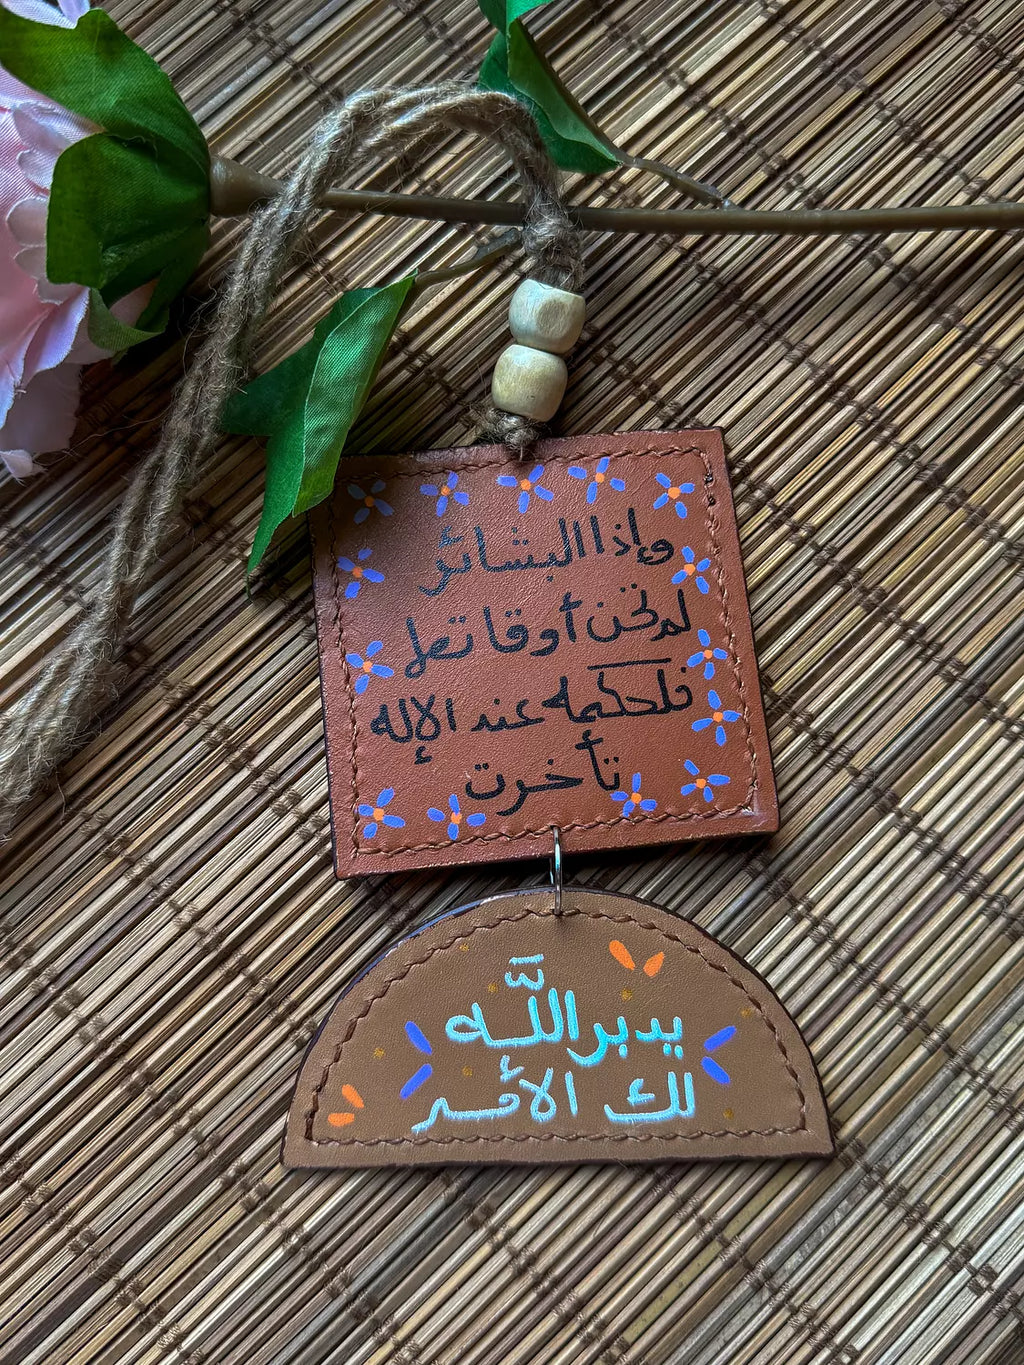 وإذا البشائر
لم تحن أوقاتها
فلحكمه عند الإله
تأخرت
يدبر اللَّه
لك الأمر